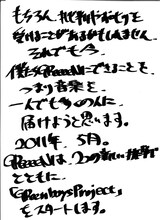 もちろん、批判やお叱りを
受けることがあるかもしれません。
それでも今、
僕らGReeeeNにできることを、
つまり音楽を
一人でも多くの人に
届けようと思います。
2011年、5月。
GReeeeNは、2つの新しい挑戦
とともに
「GReen boys Project」
をスタートします。